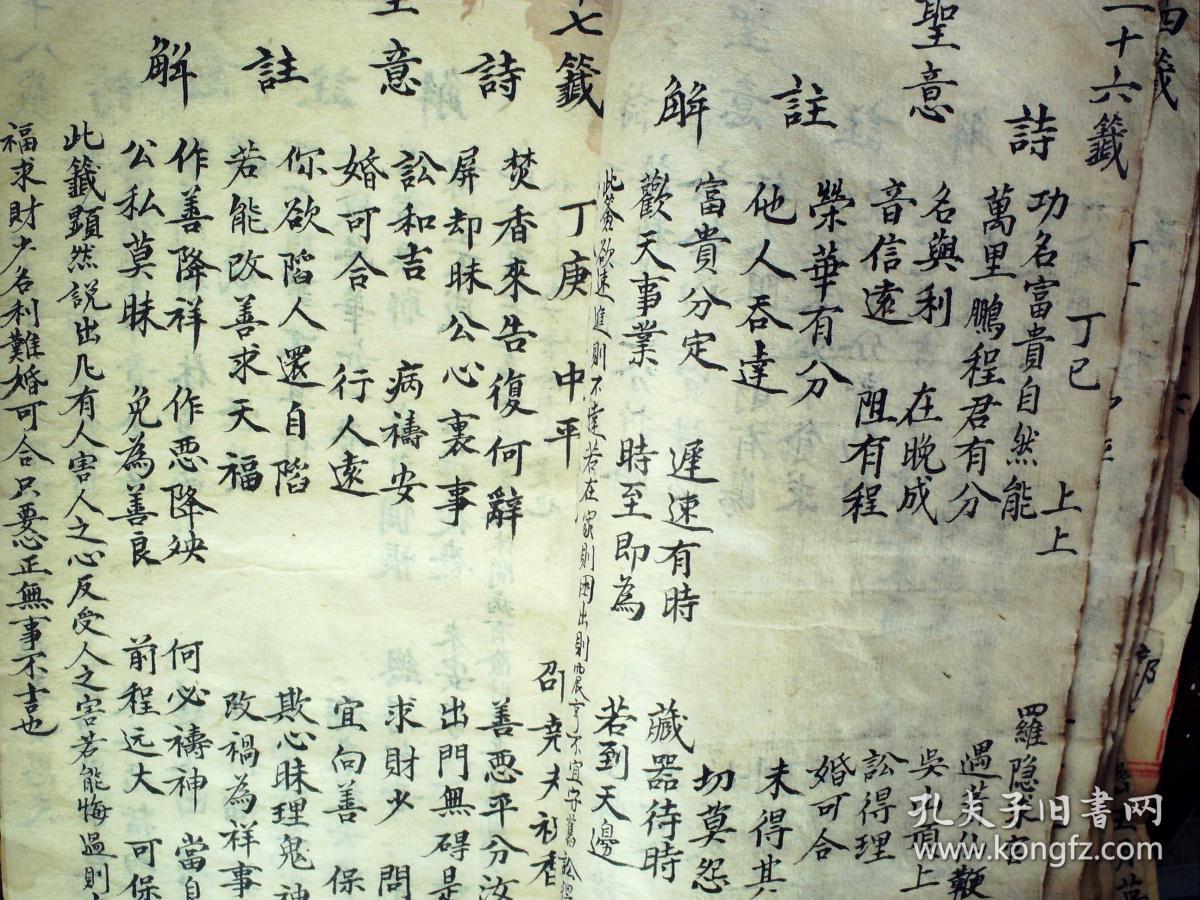 四籤
二十六籤
丁巳 上上
詩
功名富貴自然能 羅隱求
萬里鵬程君有分 遇著仙鞭
聖意
名與利 在晚成 吳
音信遠 阻有程 訟得理
婚可合
註
榮華有分 未得其
他人吞達 切莫怨
解
富貴分定 遲速有時 藏器待時
歡天事業 時至即為 若到天邊
欲速進則不達若在家則困出則 亨不宜守舊訟
十七籤
丁庚 中平 邵堯夫
詩
焚香來告復何辭 善惡平分汝
屏却昧公心裏事 出門無碍是
意
訟和吉 病禱安 求財少 問
婚可合 行人遠 宜向善 保
註
你欲陷人還自陷 欺心昧理鬼神
若能改善求天福 改禍為祥事
解
作善降祥 作惡降殃 何必禱神 當自
公私莫昧 免為善良 前程远大 可保
此籤顕然說出凡有人害人之心反受人之害若能悔過則
福求財少名利難婚可合只要心正無事不吉也
孔夫子旧書网
www.kongfz.com